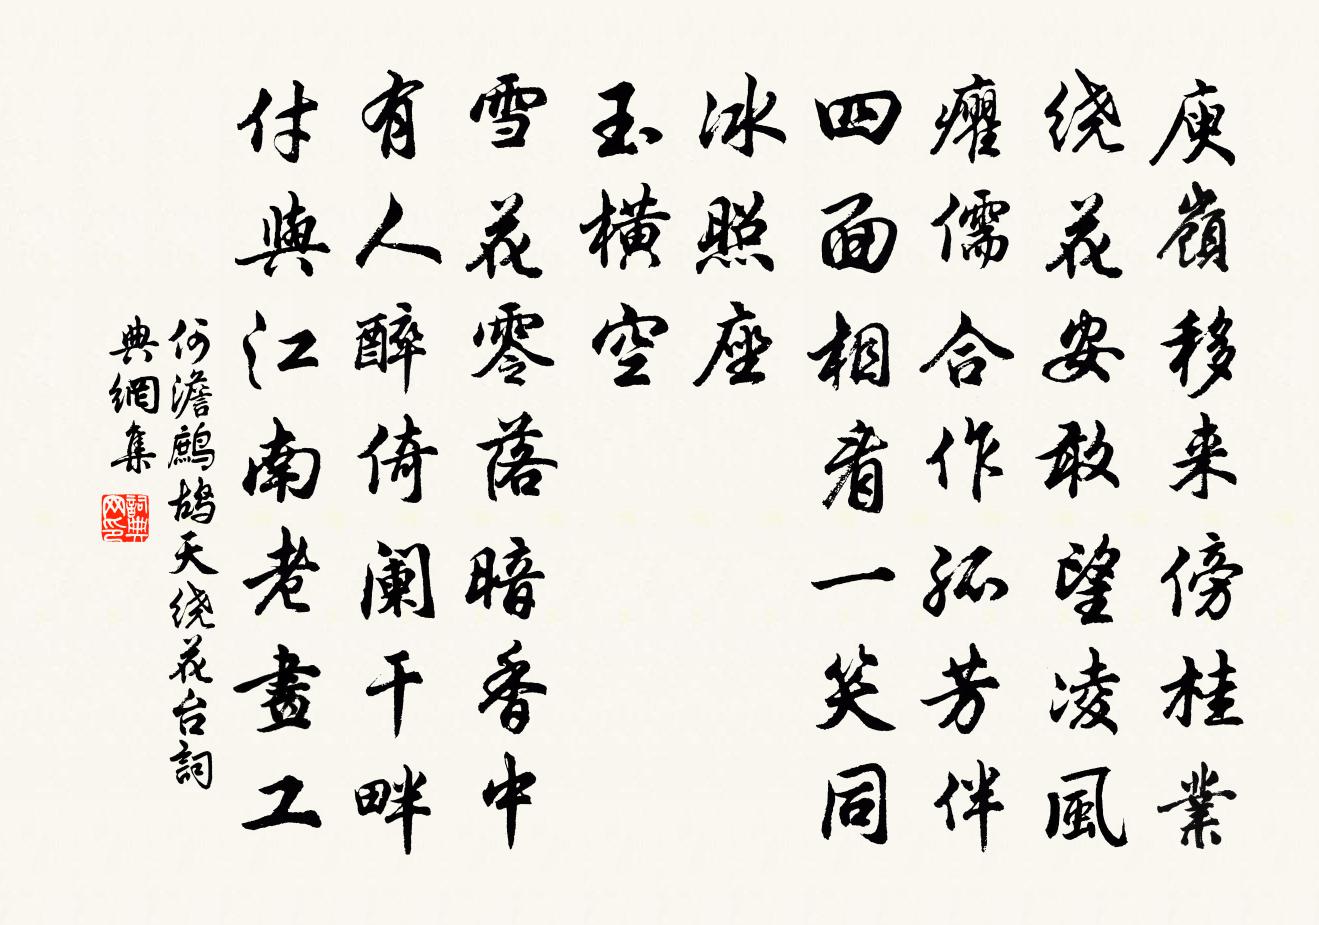 庾嶺移来傍桂業
绕花安敢望凌風
癯儒合作孤芳伴
四面相看一笑同
冰照座
玉横空
雪花零落暗香中
有人醉倚阑干畔
付與江南老畫工
何澹鹧鸪天绕花台詞
典網集
詞典网印